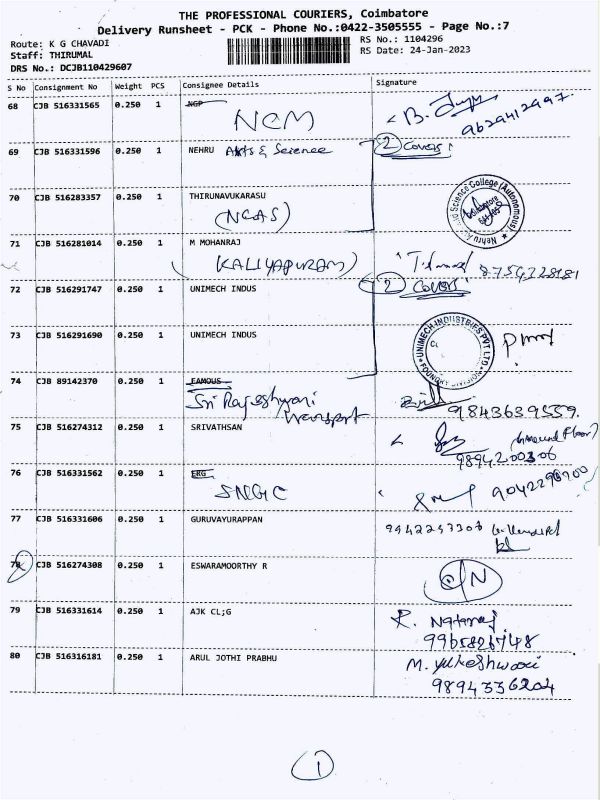 THE PROFESSIONAL COURIERS, Coimbatore
Delivery Runsheet - PCK - Phone No.:0422-3505555 - Page No.:7
Route: K G CHAVADI RS No.: 1104296
Staff: THIRUMAL RS Date: 24-Jan-2023
DRS No.: DCJB110429607
S No Consignment No Weight PCS Consignee Details Signature
68 CJB 516331565 0.250 1 NGP
NCM
9629412997
69 CJB 516331596 0.250 1 NEHRU Arts & Science 2 Covers
70 CJB 516283357 0.250 1 THIRUNAVUKARASU
(NCAS)
71 CJB 516281014 0.250 1 M MOHANRAJ
(KALIYAPURAM) 8754228181
72 CJB 516291747 0.250 1 UNIMECH INDUS 2 Covers
73 CJB 516291690 0.250 1 UNIMECH INDUS
UNIMECH INDUSTRIES PVT LTD
74 CJB 89142370 0.250 1 FAMOUS
Sri Rajeshwari
transport 9843639559
75 CJB 516274312 0.250 1 SRIVATHSAN
(Ground Floor)
9894200306
76 CJB 516331562 0.250 1 ERG
SNGC
77 CJB 516331606 0.250 1 GURUVAYURAPPAN
78 CJB 516274308 0.250 1 ESWARAMOORTHY R
79 CJB 516331614 0.250 1 AJK CL;G R. Nataraj
80 CJB 516316181 0.250 1 ARUL JOTHI PRABHU M. yukeshwari
9894336204
1